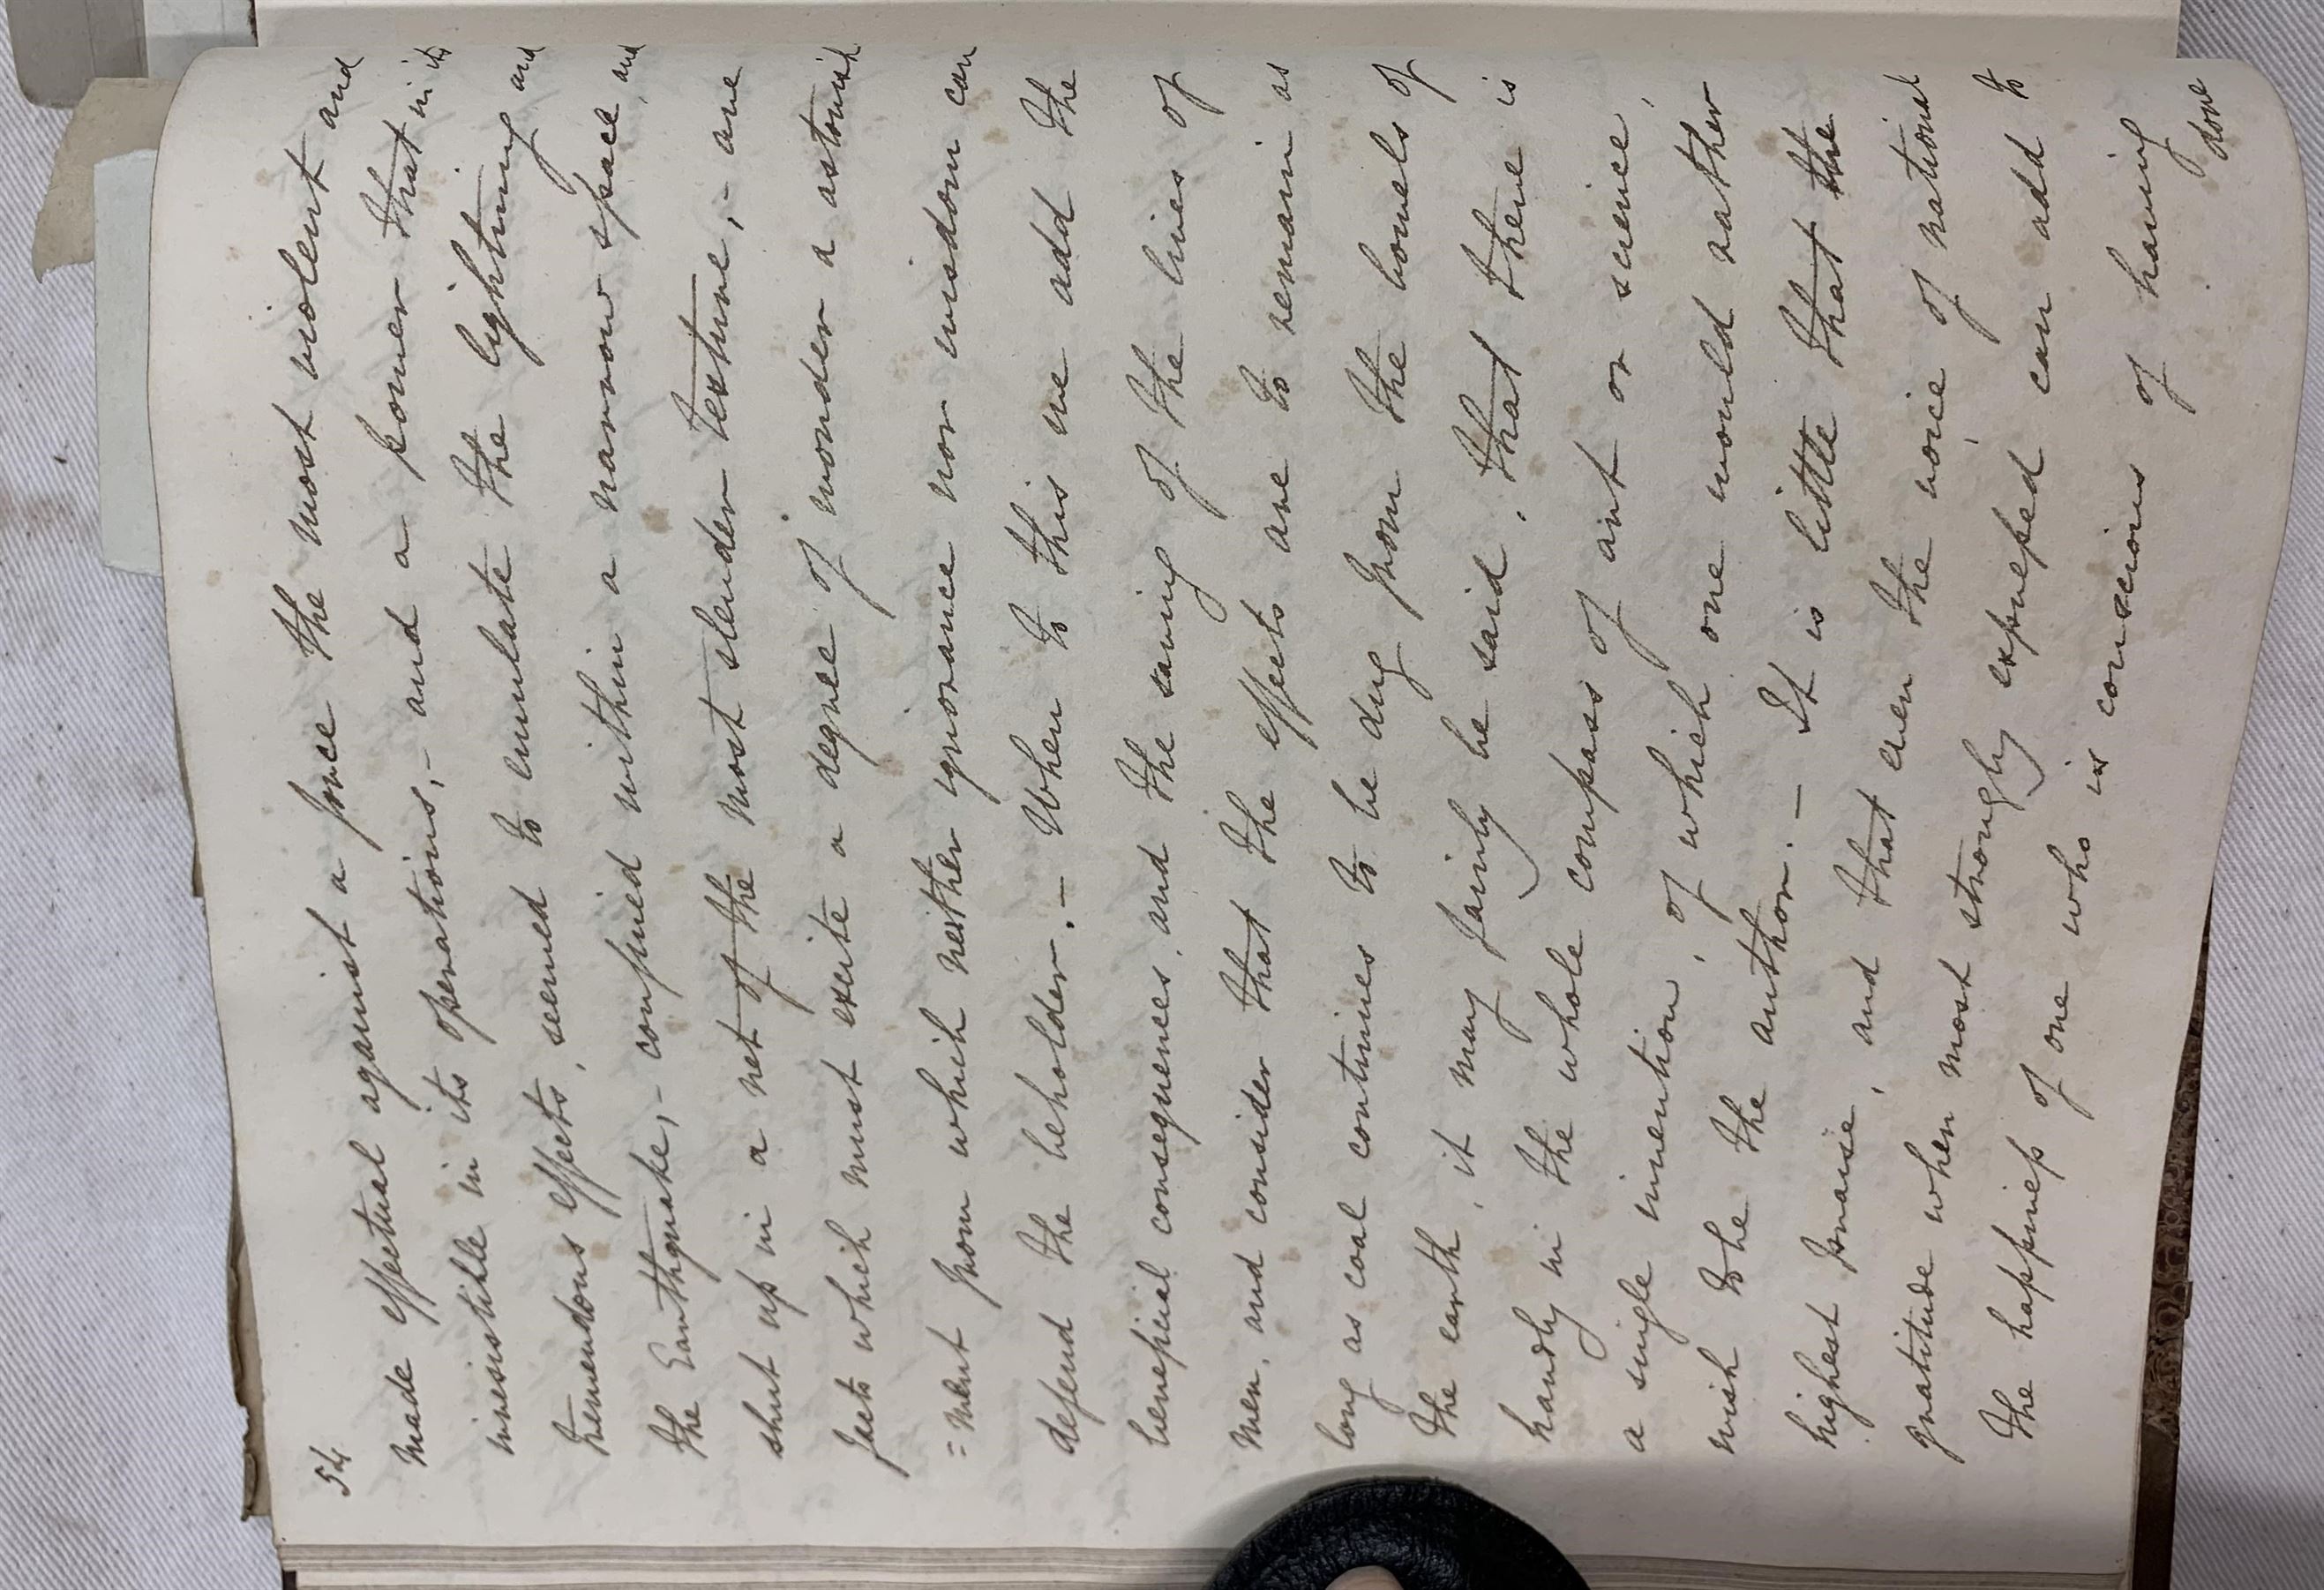 54
made effectual against a force the most violent and
irresistible in its operations,- and a power that in its
tremendous effects, seemed to emulate the lightning and
the Earthquake,- confined within a narrow space, and
shut up in a net of the most slender texture,- are
facts which must excite a degree of wonder a astonish
=ment from which neither ignorance nor wisdom can
defend the beholder.- When to this we add the
beneficial consequences, and the saving of the lives of
men, and consider that the effects are to remain as
long as coal continues to be dug from the bowels of
the earth, it may fairly be said, that there is
hardly in the whole compass of art or science,
a single invention, of which one would rather
wish to be the author.- It is little that the
highest praise, and that even the voice of national
gratitude when most strongly expressed can add to
the happiness of one who is conscious of having
done